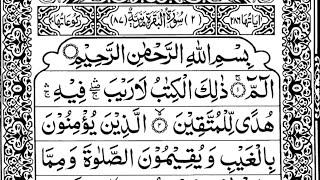 اٰیَاتُهَا ۲۸۶ (۲) سُوْرَةُ الْبَقَرَةِ مَدَنِیَّةٌ (۸۷) رُكُوْعَاتُهَا ۴۰
بِسْمِ اللّٰهِ الرَّحْمٰنِ الرَّحِیْمِ
الٓمّٓ ۚ ذٰلِكَ الْكِتٰبُ لَا رَیْبَ ۛۖۚ فِیْهِ ۛۚ
هُدًی لِّلْمُتَّقِیْنَ ۙ الَّذِیْنَ یُؤْمِنُوْنَ
بِالْغَیْبِ وَیُقِیْمُوْنَ الصَّلٰوةَ وَمِمَّا